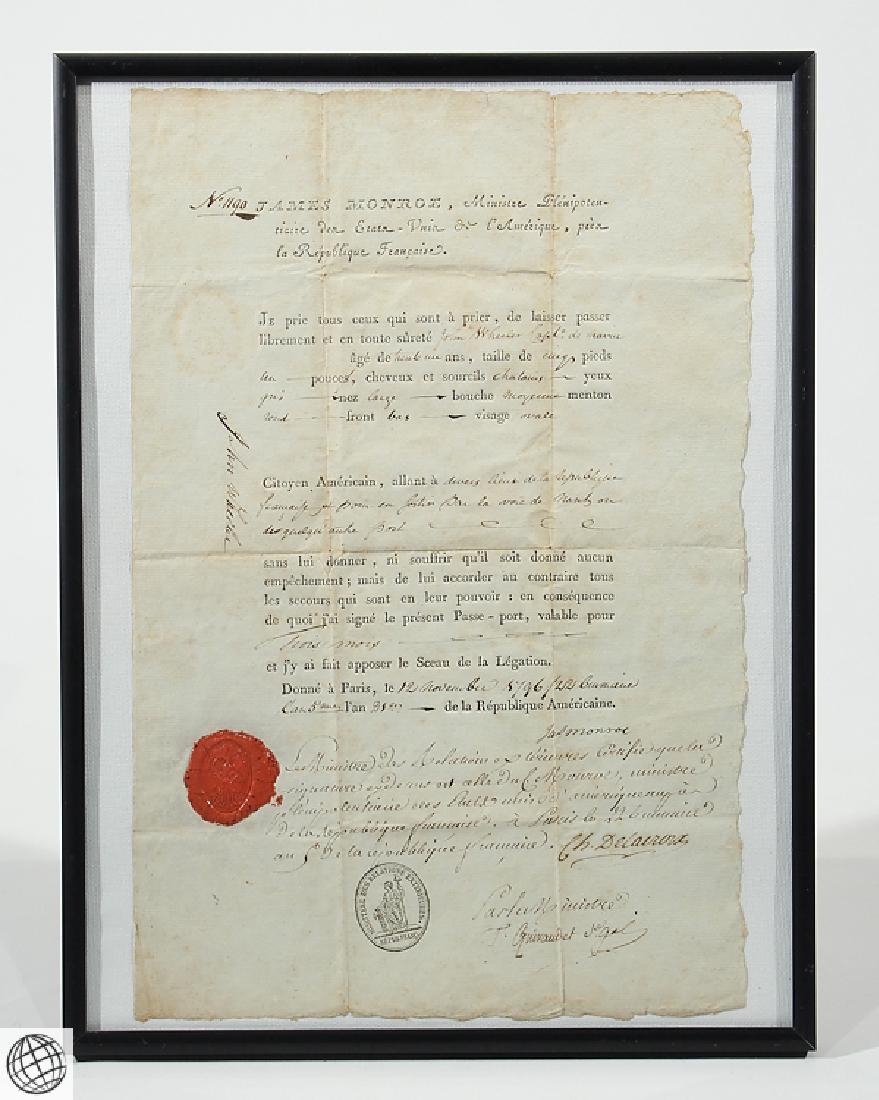 N.° 1190 JAMES MONROE, Ministre Plénipoten-
ticire des Etats-Unis de l'Amérique, près
la République Française.
JE prie tous ceux qui sont à prier, de laisser passer
librement et en toute sûreté John Capt. de navire
âgé de ans, taille de cinq pieds
pouces, cheveux et sourcils chatains yeux
gris nez large bouche moyenne menton
rond front bas visage ovale
Citoyen Américain, allant à divers lieux de la République
française et la voie de ou
de quelqu'autre Port
sans lui donner, ni souffrir qu'il soit donné aucun
empêchement; mais de lui accorder au contraire tous
les secours qui sont en leur pouvoir : en conséquence
de quoi j'ai signé le présent Passe-port, valable pour
Trois mois
et j'y ai fait apposer le Sceau de la Légation.
Donné à Paris, le 12 November 1796 / 22 brumaire
l'an 5me l'an 21me de la République Américaine.
Jas Monroe
Le Ministre des Relations extérieures Certifie que la
signature cy dessus est celle du C. Monroe, ministre
plénipotentiaire des Etats unis d'amérique près
de la république française. à Paris le 22 brumaire
an 5e de la république française. Ch. Delacroix
MINISTERE DES RELATIONS EXTERIEURES
REP. FRANC.
Par le Ministre
John